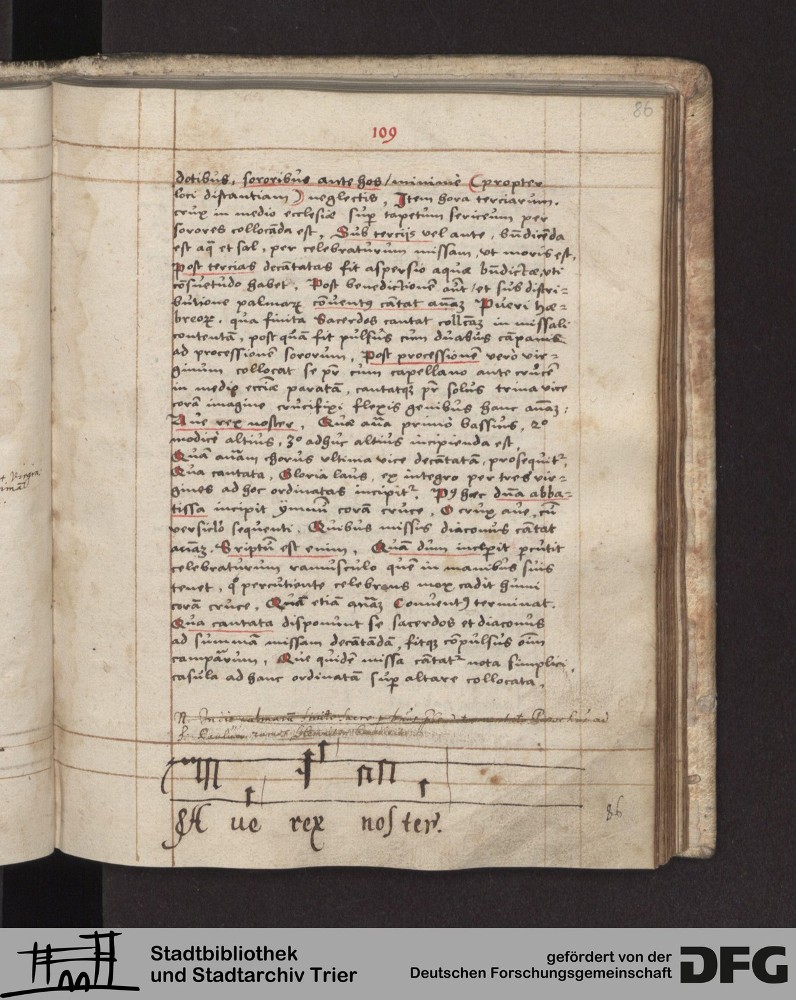 86
109
dotibus, sororibus ante hos / minime (propter
loci distantiam) neglectis, Item hora terciarum.
crux in medio ecclesiæ sup tapetum sericeum per
sorores collocāda est, Sub tercijs vel ante, bñdicēda
est aq̃ et sal, per celebraturum missam, vt moris est,
Post tercias decātatas fit aspersio aquæ bñdictæ, vti
cōsuetudo habet, Post benedictionē aūt / et sub distri=
butione palmarꝝ cōuentꝰ cātat añaꝫ Pueri hæ=
breorꝝ, qua finita Sacerdos cantat collcāꝫ in missali
contentā, post quā fit pulsus cum duabus cāpanis
ad processionē sororum, Post processionē vero vir=
ginum collocat se pr̄ cum capellano ante crucē
in medio ecciæ paratā, cantatqꝫ pr̄ solus trina vice
corā imagine crucifixi flexis genibus hanc añaꝫ:
Aue rex noster, Quæ aña primo bassius, 2º
modice altius, 3º adhuc altius incipienda est,
Quā añam chorus vltima vice decātatā, prosequitʳ,
Qua cantata, Gloria laus, ex integro per tres vir=
gines ad hoc ordinatas incipitʳ, Pꝰ hæc dña abba=
tissa incipit ÿmnū corā cruce, O crux aue, cū
versiclo sequenti, Quibus missus diaconus cātat
añaꝫ, Scriptū est enim, Quā dum incipit pcutit
celebraturum ramusculo quē in manibus suis
tenet, q̊ percutiente celebrans mox cadit humi
corā cruce, Quā etiā añaꝫ Conuentꝰ terminat.
Qua cantata disponunt se sacerdos et diaconus
ad summā missam decātādā, fitqꝫ cōpulsus oīm
campanarum, Quæ quidē missa cātatʳ nota simplici,
casula ad hanc ordinatā sup altare collocata.
A ue rex nos ter.
86
Stadtbibliothek
und Stadtarchiv Trier
gefördert von der
Deutschen Forschungsgemeinschaft
DFG